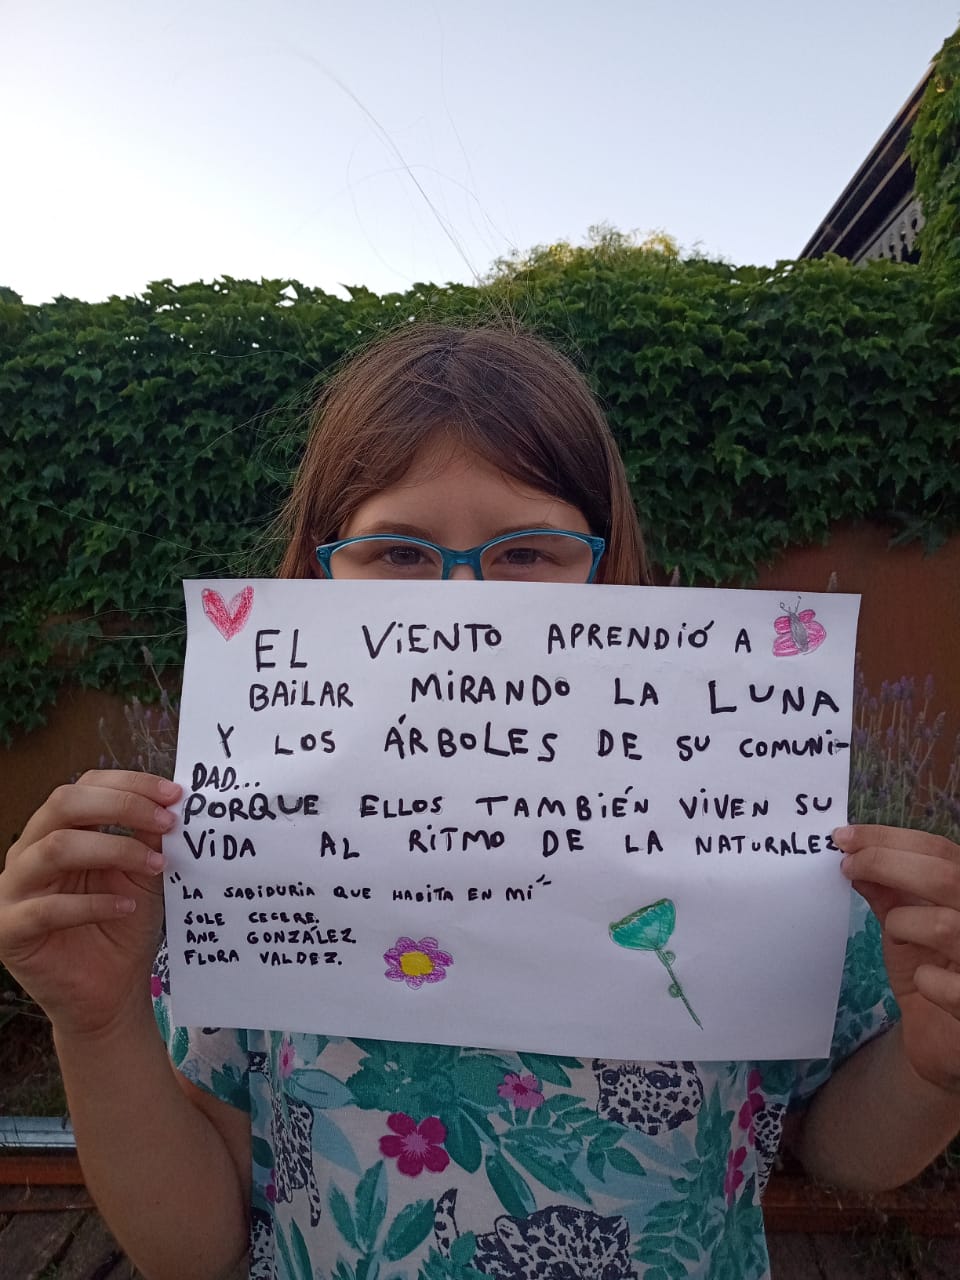 EL VIENTO APRENDIÓ A
BAILAR MIRANDO LA LUNA
Y LOS ÁRBOLES DE SU COMUNI-
DAD...
PORQUE ELLOS TAMBIÉN VIVEN SU
VIDA AL RITMO DE LA NATURALEZ
"LA SABIDURIA QUE HABITA EN MI"
SOLE CECERE.
ANE GONZÁLEZ
FLORA VALDEZ.